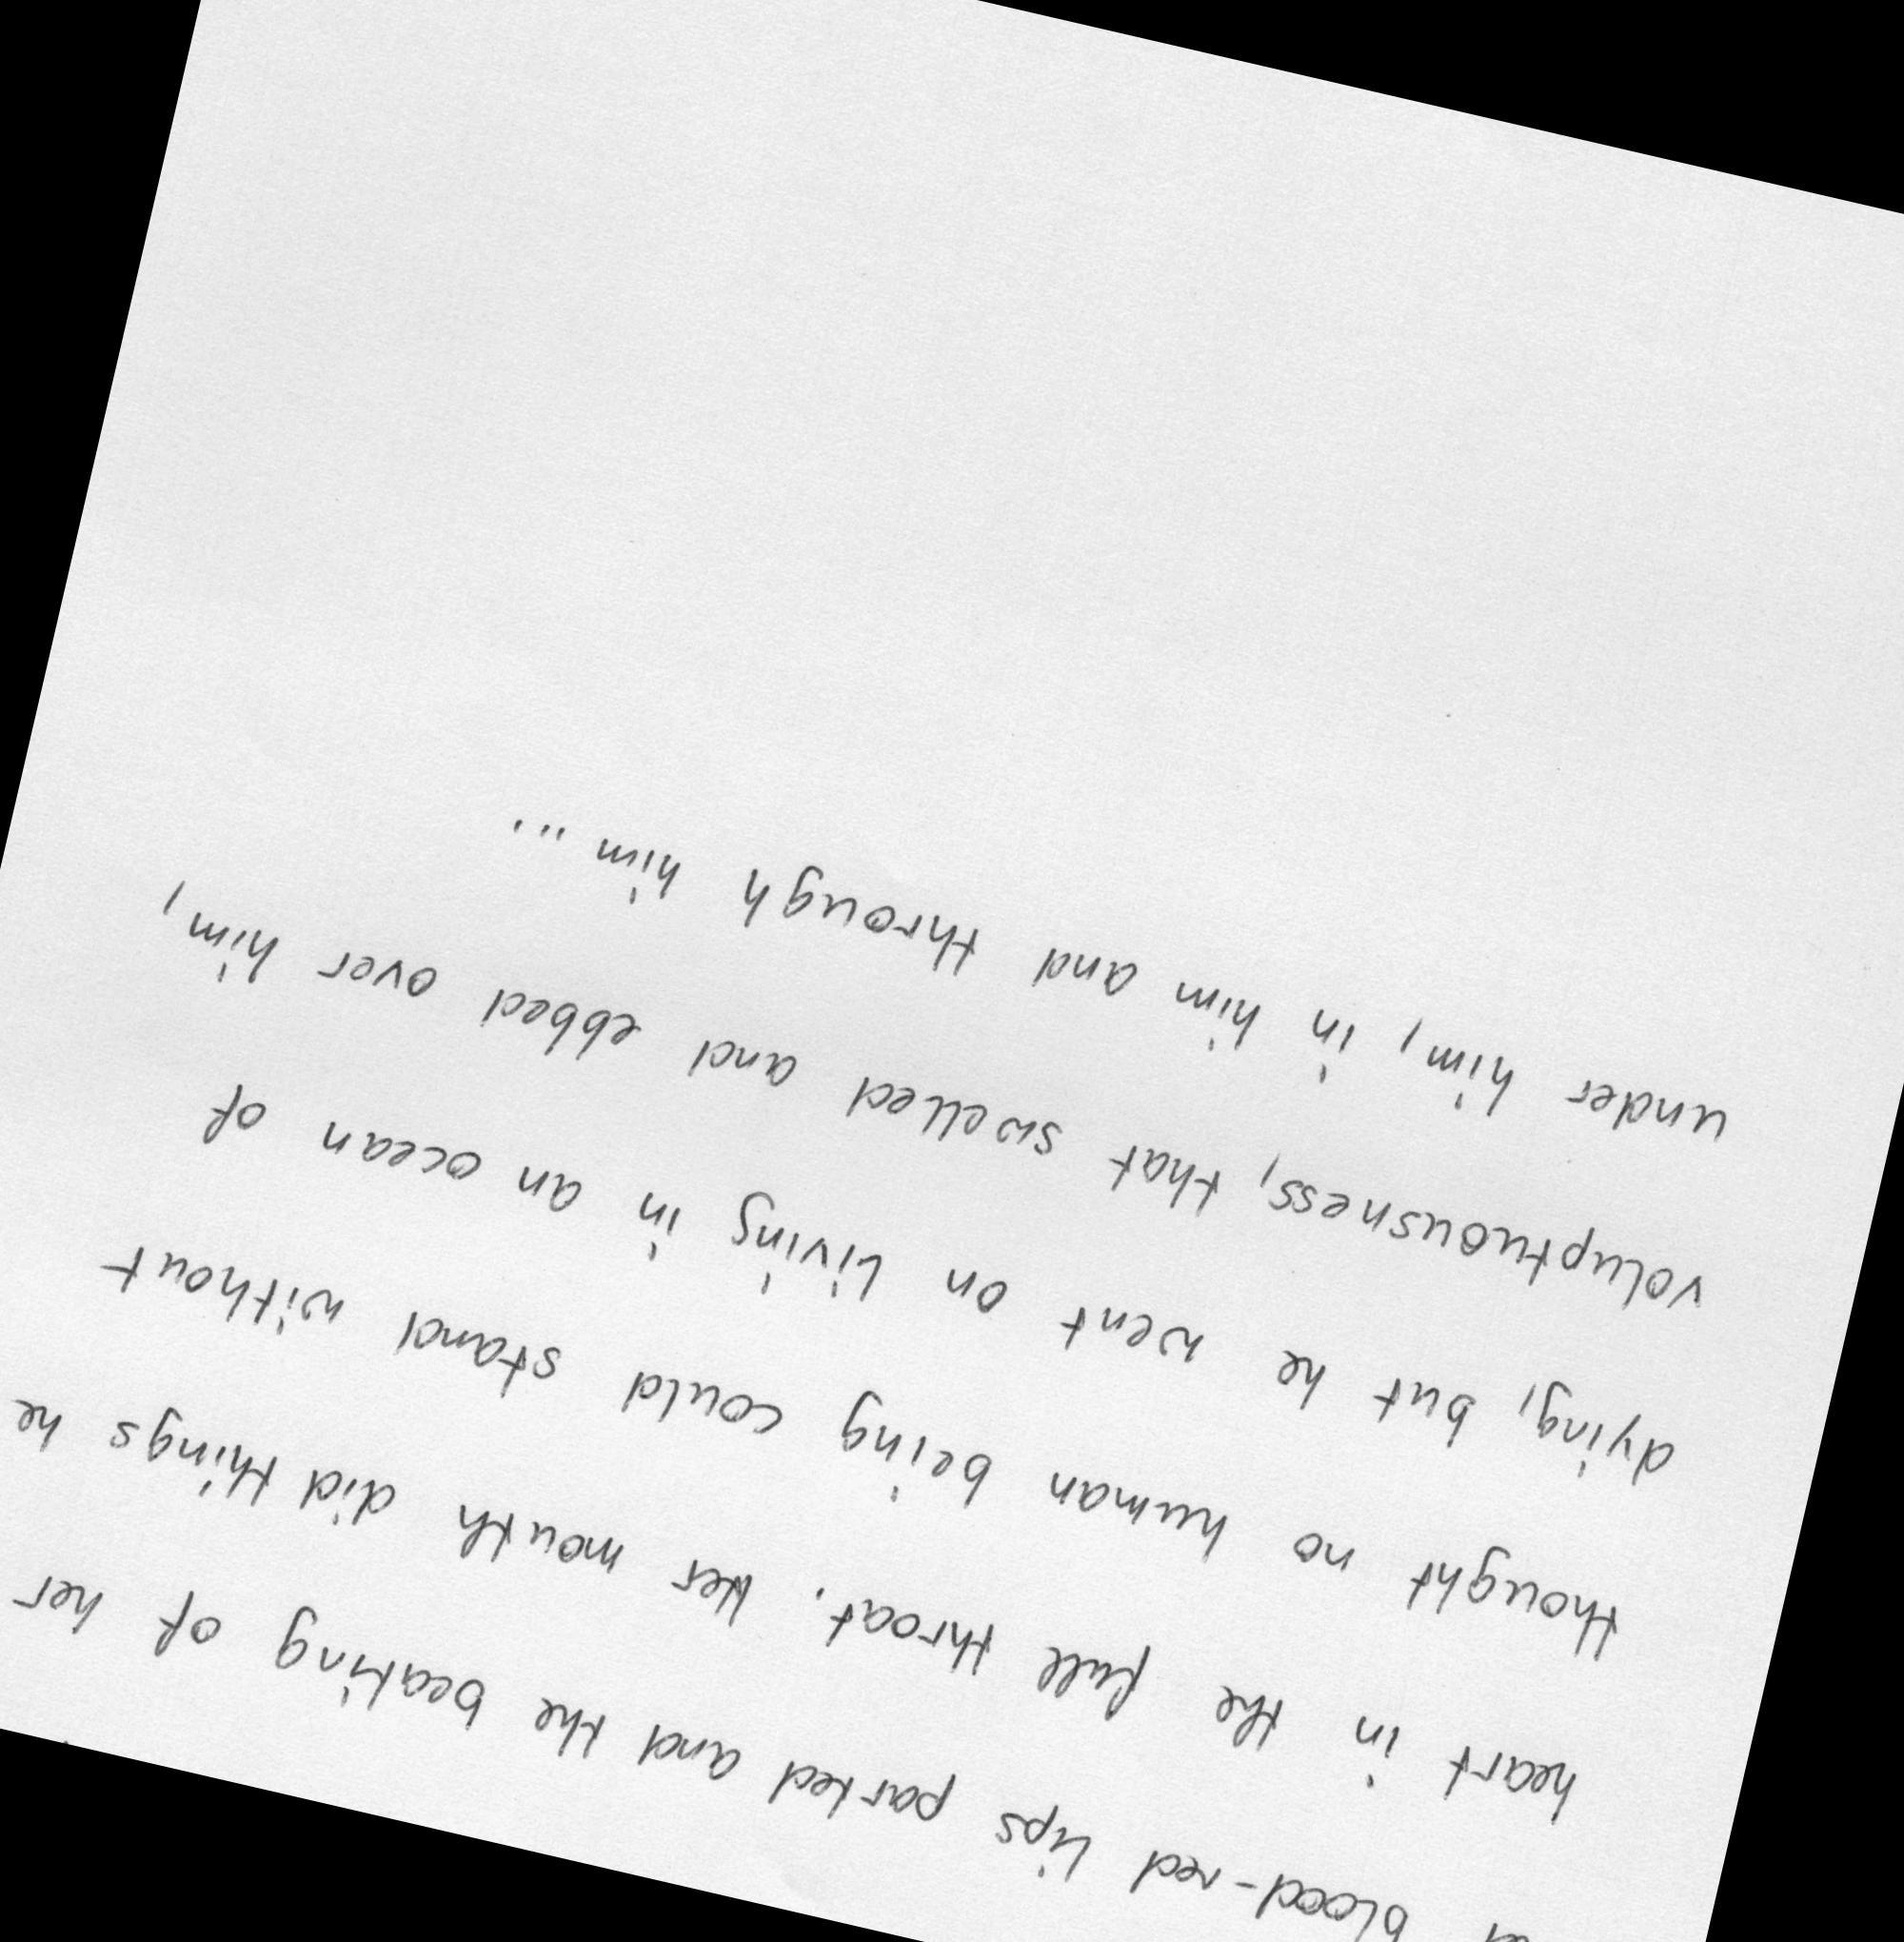 blood-red lips parted and the beating of her
heart in the full throat. Her mouth did things he
thought no human being could stand without
dying, but he went on living in an ocean of
voluptuousness, that swelled and ebbed over him,
under him, in him and through him ...